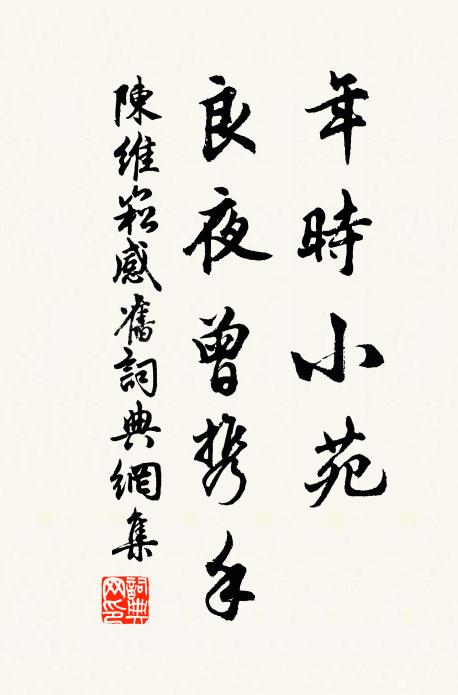 年時小苑
良夜曾携手
陳維崧感舊詞典網集
詞典网印